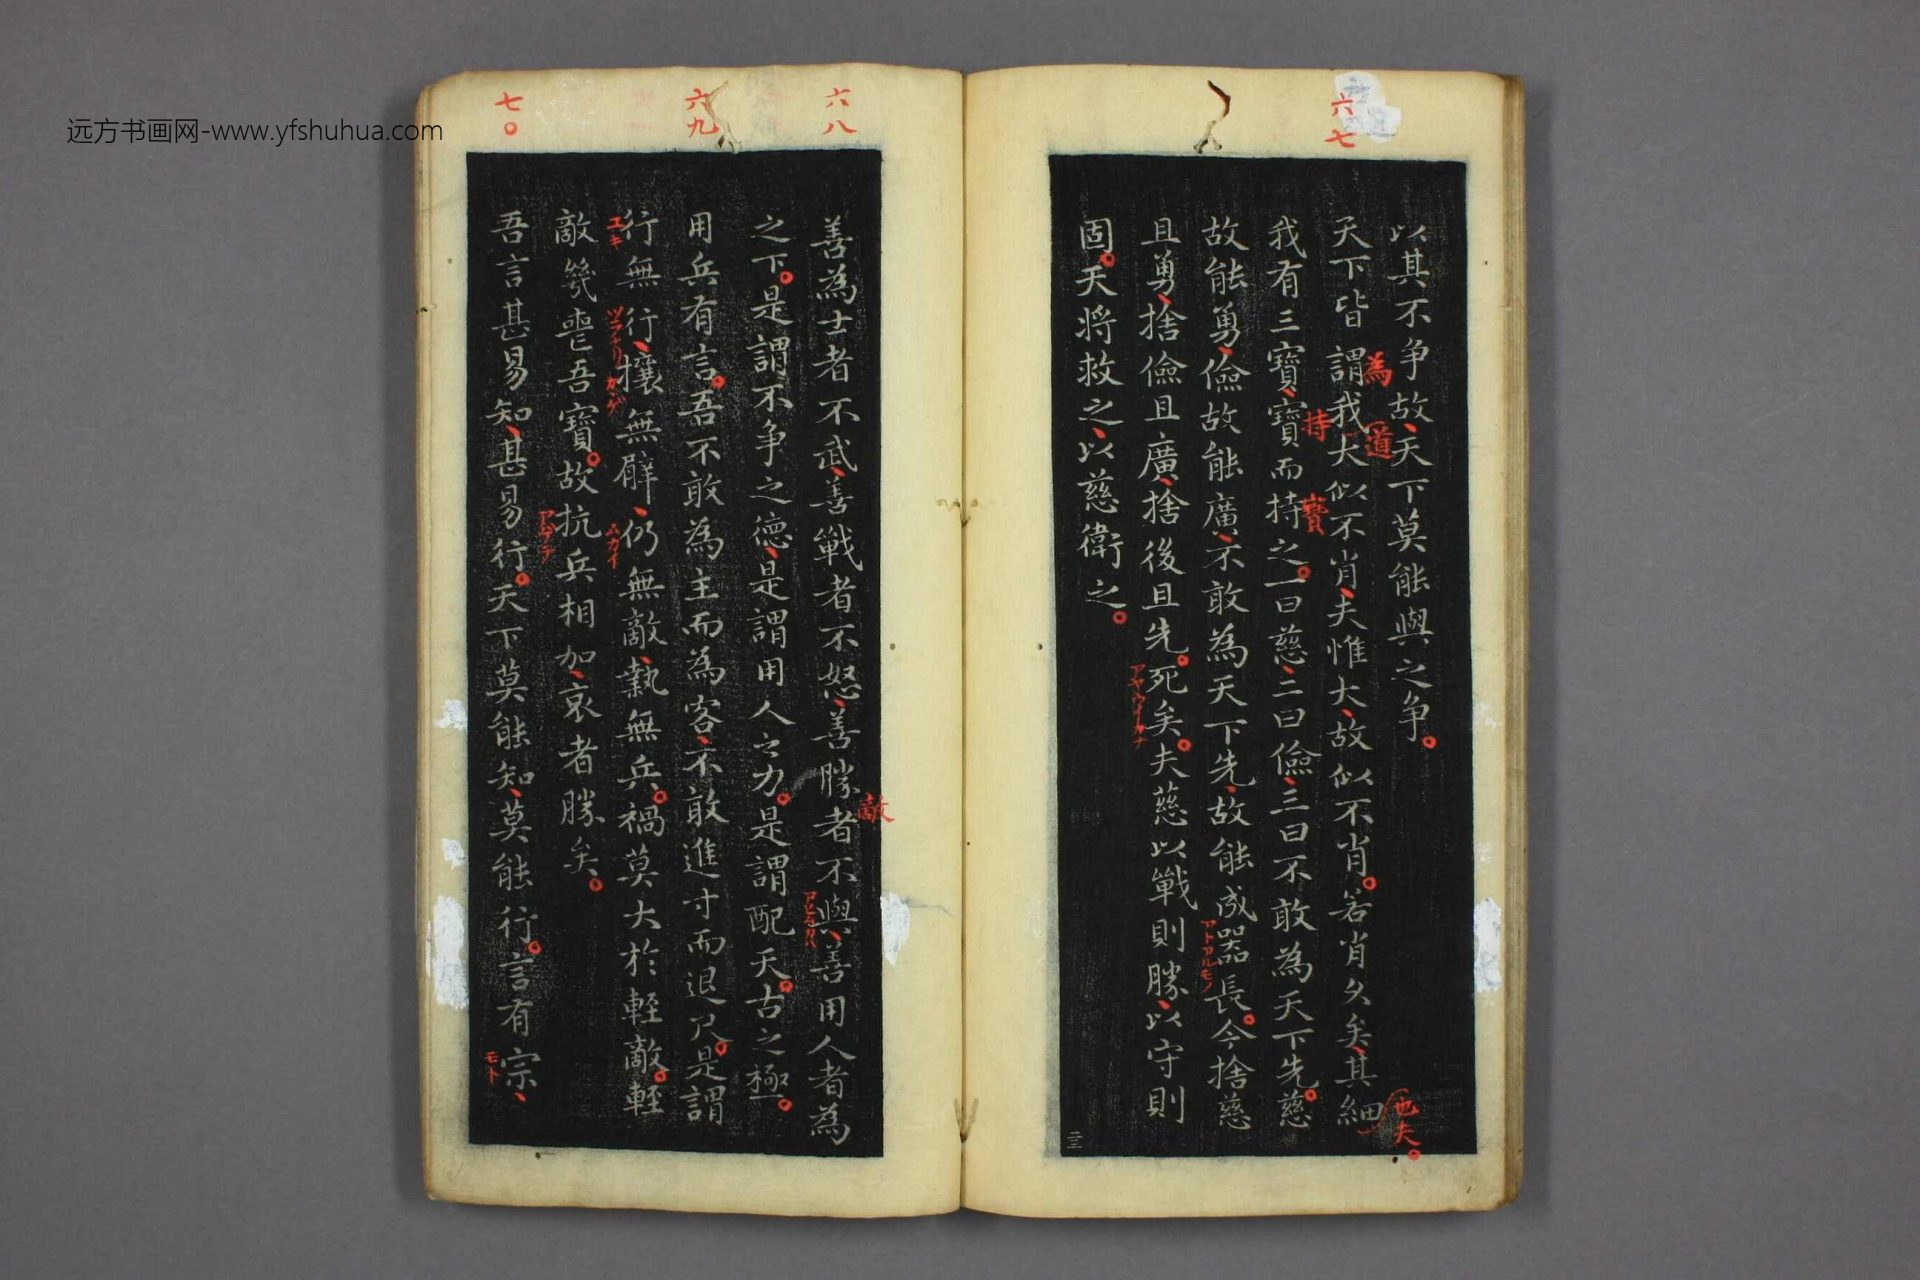 远方书画网-www.yfshuhua.com
六七
以其不争故天下莫能與之争
天下皆謂我大似不肖夫惟大故似不肖若肖久矣其細
為
道
也夫
我有三寶寶而持之一曰慈二曰儉三曰不敢為天下先慈
持
寶
故能勇儉故能廣不敢為天下先故能成器長今捨慈
アトアルモノ
且勇捨儉且廣捨後且先死矣夫慈以戰則勝以守則
固天将救之以慈衛之
二三
六八
善為士者不武善戰者不怒善勝者不與善用人者為
敵
之下是謂不争之德是謂用人之力是謂配天古之極
六九
用兵有言吾不敢為主而為客不敢進寸而退尺是謂
行無行攘無臂仍無敵執無兵禍莫大於輕敵輕
ユキ
ムカイ
敵幾喪吾寶故抗兵相加哀者勝矣
七〇
吾言甚易知甚易行天下莫能知莫能行言有宗
モト